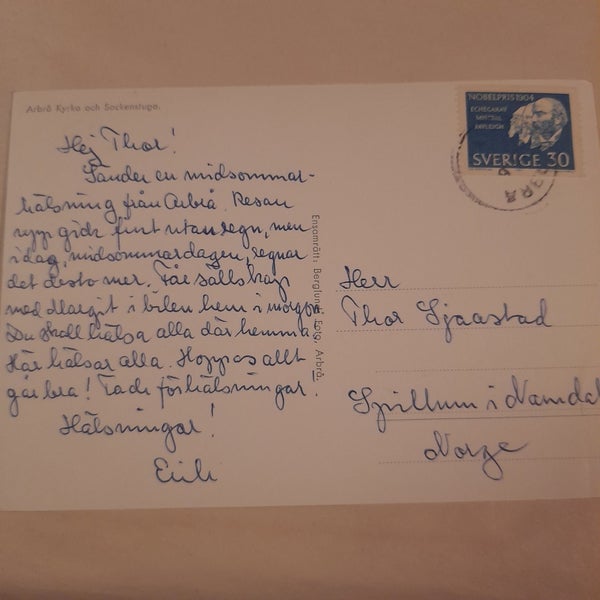 Arbrå Kyrka och Sockenstuga.
NOBELPRIS 1904
ECHEGARAY
MISTRAL
RAYLEIGH
SVERIGE 30
ARBRÅ
Hej Thor!
Sänder en midsommar-
hälsning från Arbrå. Resan
upp gick fint utan regn, men
idag, midsommardagen, regnar
det desto mer. Får sällskap
med Margit i bilen hem i morgon
Du skall hälsa alla där hemma
Här hälsar alla. Hoppas allt
går bra! Tack för hälsningar.
Hälsningar!
Erik
Ensamrätt: Berglunds Foto, Arbrå.
Herr
Thor Sjaastad
Spillum i Namdal
Norge